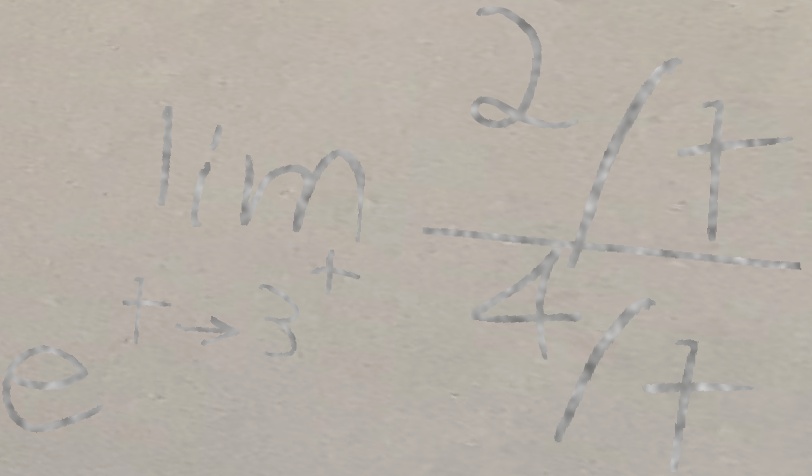 lim_{t→3^+} \frac{2/t}{4/t}
e